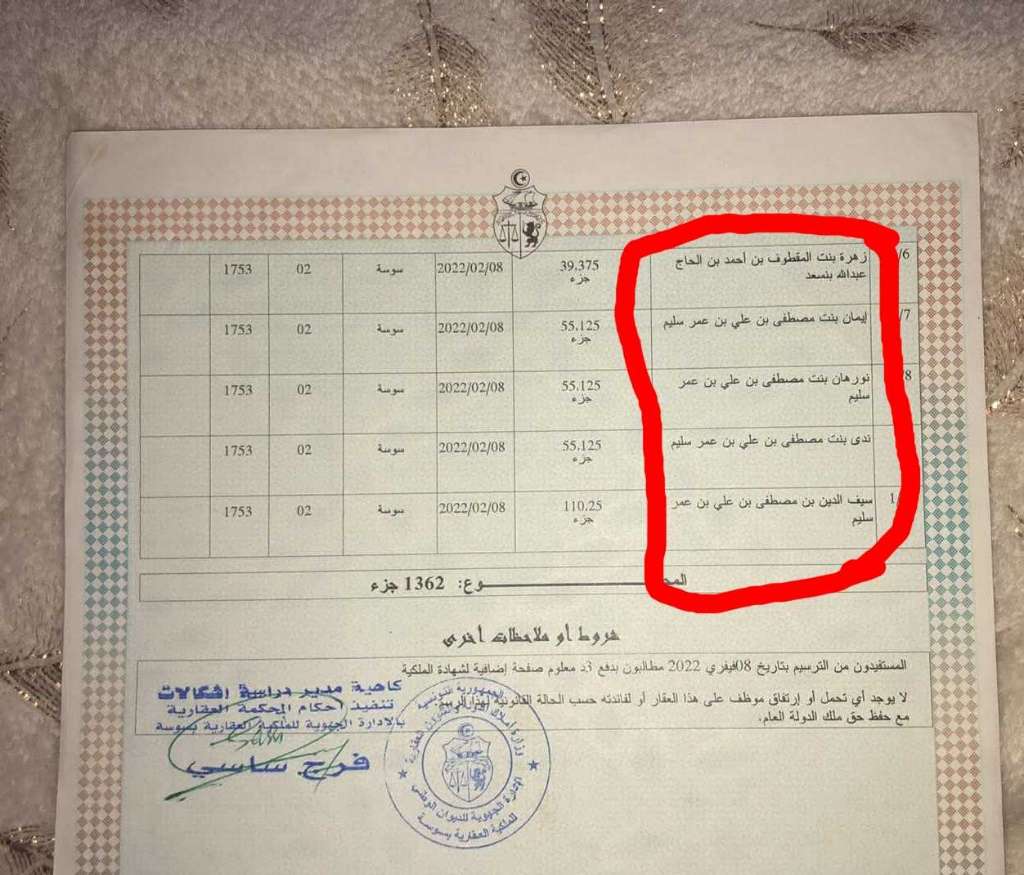 6/ زهرة بنت المقطوف بن أحمد بن الحاج عبدالله بنسعد 39.375 جزء 2022/02/08 سوسة 02 1753
7/ إيمان بنت مصطفى بن علي بن عمر سليم 55.125 جزء 2022/02/08 سوسة 02 1753
8 نورهان بنت مصطفى بن علي بن عمر سليم 55.125 جزء 2022/02/08 سوسة 02 1753
ندى بنت مصطفى بن علي بن عمر سليم 55.125 جزء 2022/02/08 سوسة 02 1753
1/ سيف الدين بن مصطفى بن علي بن عمر سليم 110.25 جزء 2022/02/08 سوسة 02 1753
المجـــوع: 1362 جزء
شروط أو ملاحظات أخرى
المستفيدون من الترسيم بتاريخ 08فيفري 2022 مطالبون بدفع 3د معلوم صفحة إضافية لشهادة الملكية
لا يوجد أي تحمل أو إرتفاق موظف على هذا العقار أو لفائدته حسب الحالة القانونية لهذا الرسم
مع حفظ حق ملك الدولة العام.
كاهية مدير دراسة إشكالات
تنفيذ أحكام المحكمة العقارية
بالادارة الجهوية للملكية العقارية بسوسة
فرج ساسي
الجمهورية التونسية
وزارة أملاك الدولة والشؤون العقارية
الإدارة الجهوية للديوان الوطني
للملكية العقارية بسوسة